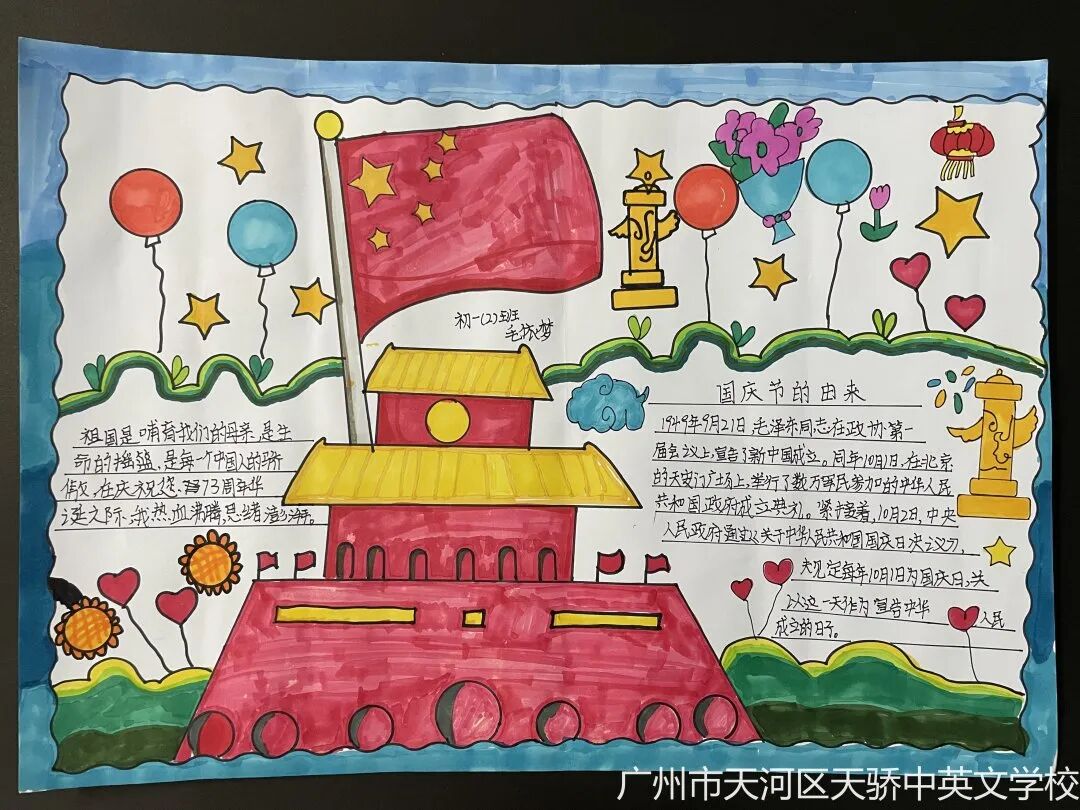 初一(2)班
毛
祖国是哺育我们的母亲,是生
命的摇篮,是每一个中国人的骄
傲。在庆祝 73周年华
诞之际,我热血沸腾,思绪澎湃。
国庆节的由来
1949年9月21日,毛泽东同志在政协第一
届会议上,宣告了新中国成立。同年10月1日,在北京
的天安门广场上,举行了数万军民参加的中华人民
共和国政府成立典礼。紧接着,10月2日,中央
人民政府通过《关于中华人民共和国国庆日决议》,
规定每年10月1日为国庆日,并
以这一天作为宣告中华 人民
成立的日子。
广州市天河区天骄中英文学校